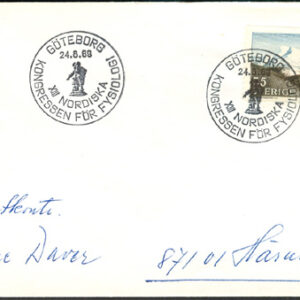 GÖTEBORG
24.8.69
XIII NORDISKA
KONGRESSEN FÖR FYSIOLOGI
GÖTEBORG
24.8.69
XIII NORDISKA
KONGRESSEN FÖR FYSIOL
5
SVERIGE
Daver
871 01